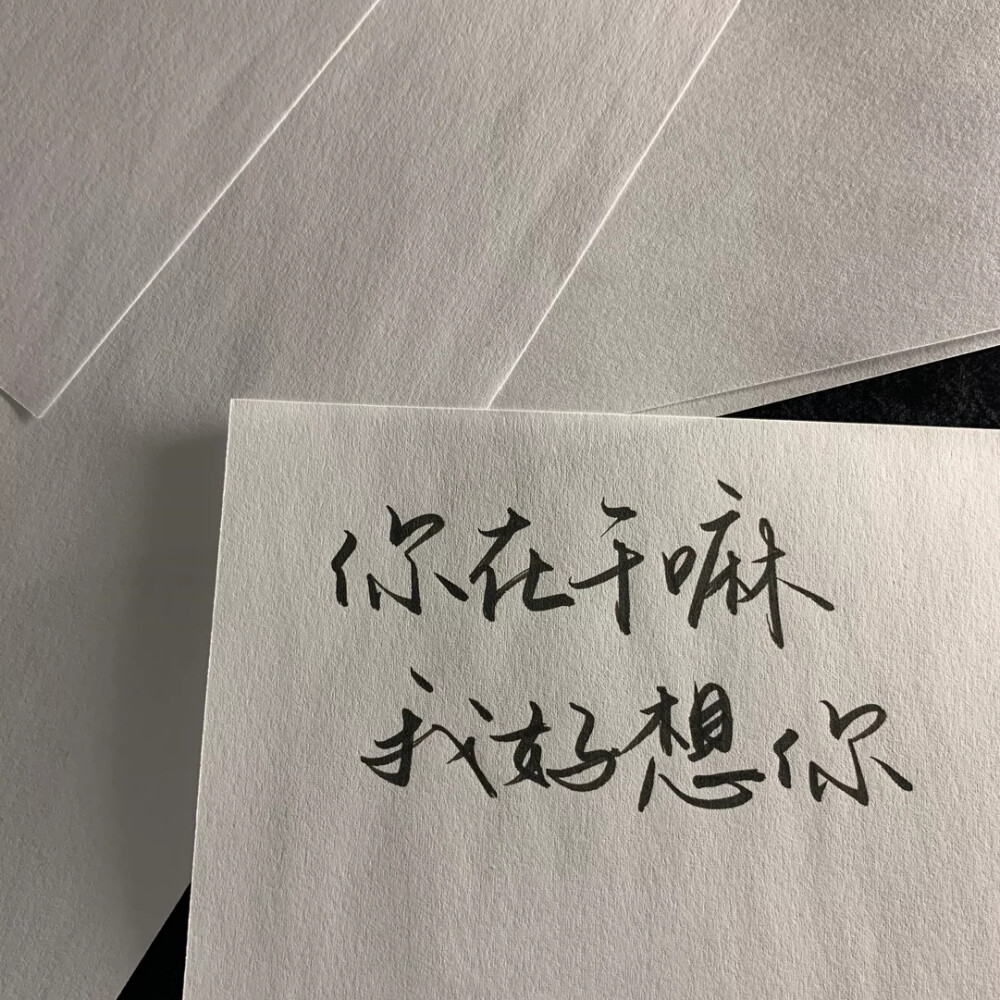 你在干嘛
我好想你